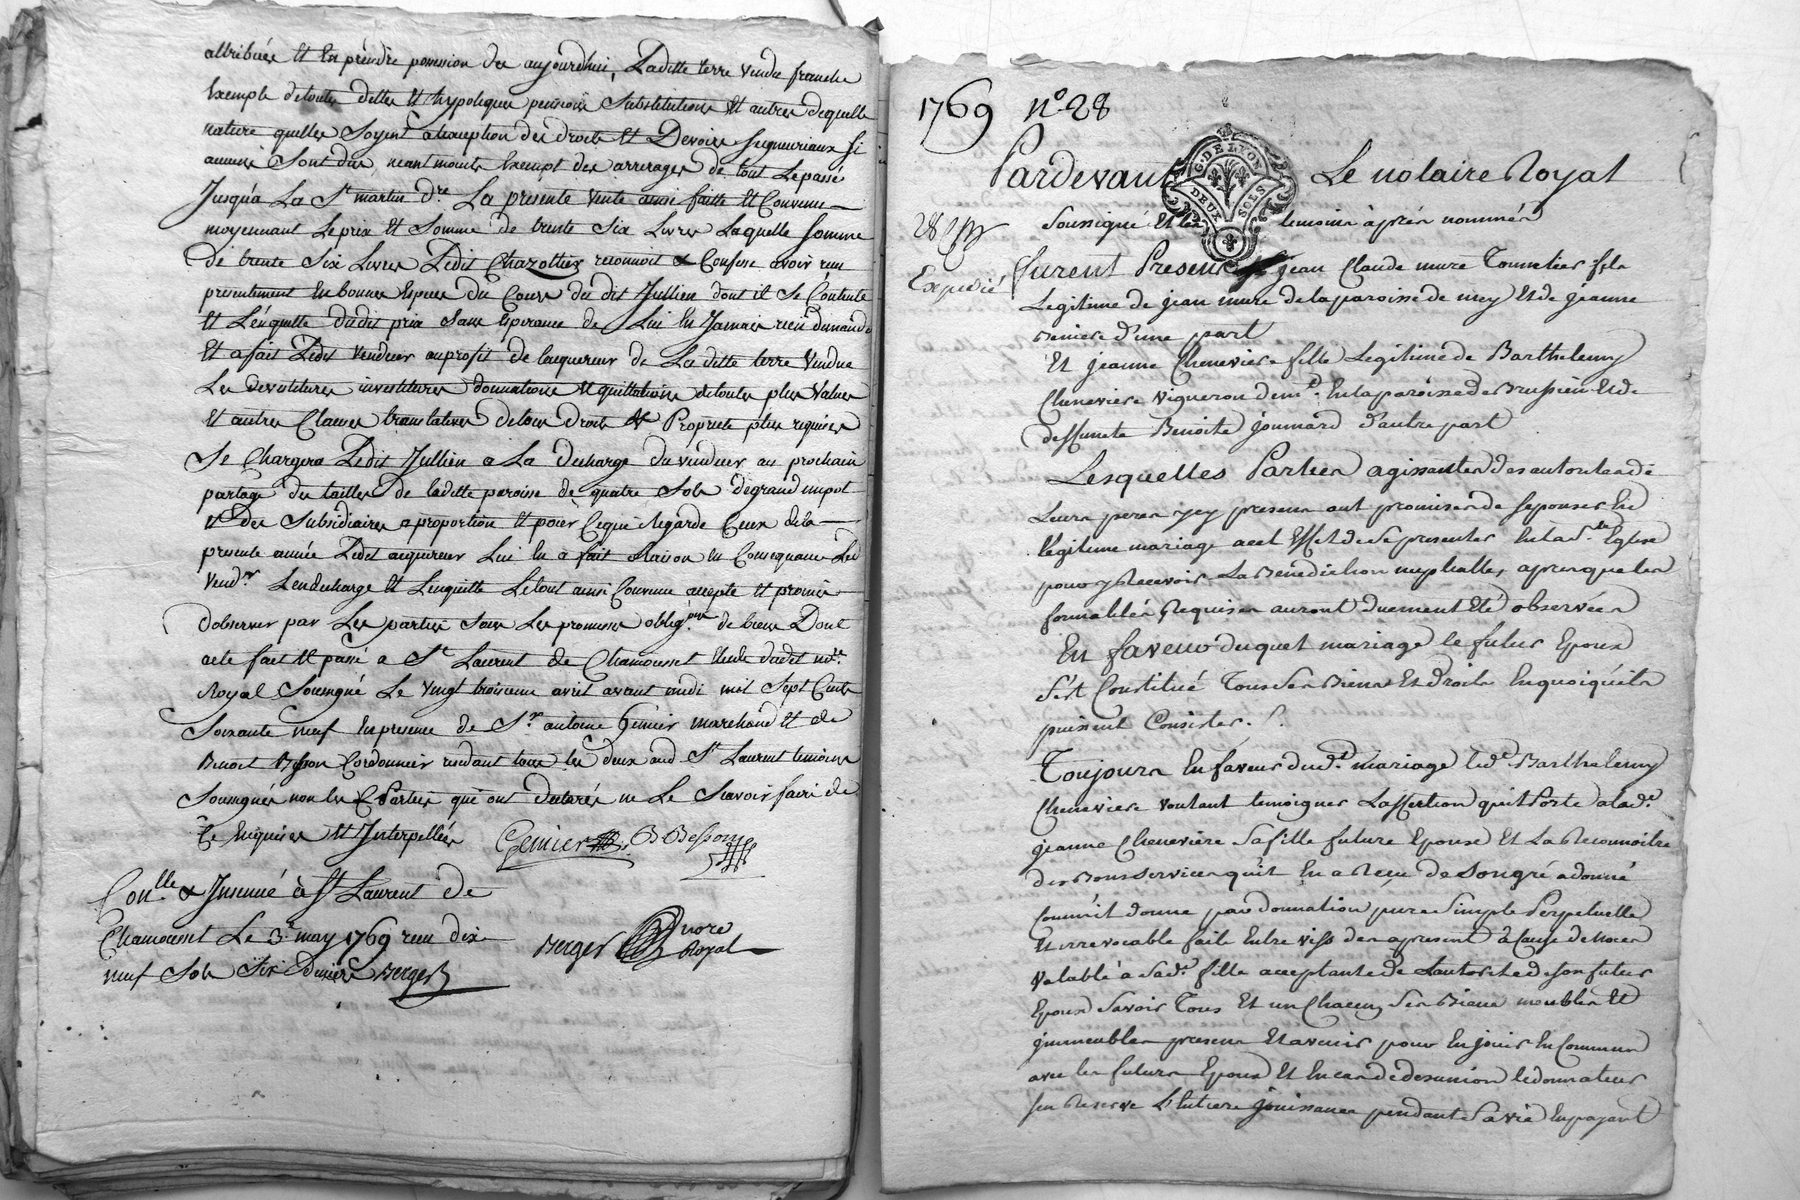 attribuée et En prendre possession des aujourdhuy, Laditte terre vendue franche
Exempte detoutes dettes et hypoteques pensions Substitutions et autres dequelle
nature quelles Soyent alexeption des droits et Devoirs Seigneuriaux Si
aucuns Sont dus, neantmoins Exempt des arrerages de tout Lepassé
Jusquà La St martin dre La presente vente ainsi faitte et Convenue
moyennant Leprix et Somme de trente Six Livres Laquelle Somme
de trente Six Livres Ledit Chazottier reconnoit & Confesse avoir reçu
presentement En bonnes Especes du Cours du dit Jullien dont il Se Contente
et L'enquitte dudit prix Sans Esperance de Lui En Jamais rien demander
Et afait Ledit vendeur auprofit de lacquereur de La ditte terre vendue
Les devestitures investitures donnations et quittations detoutes plus values
Et autres Clauses translatives detous droits & Proprieté plus requises
Se Chargera Ledit Jullien a La decharge du vendeur au prochain
partage des tailles de ladite paroisse de quatre Sols degrand impot
et des Subsidiaires a proportion et pour Cequi Regarde Ceux de la
presente année Ledit acquereur Lui En a fait Raison En Consequence Led
vendr Lendecharge et L'enquitte Letout ainsi Convenu accepté et promis
dobserver par Les parties Sous Les promesses obligons de biens Dont
acte fait et passé a St Laurent de Chamousset Etude dudit nore
Royal Soussigné Le vingt troisieme avril avant midi mil Sept Cents
Soixante neuf En presence de Sr antoine Genier marchand et de
Benoit Besson Cordonnier residant tous les deux aud St Laurent temoins
Soussignés non les Parties qui ont declarés ne Le Scavoir faire de
Ce Enquises et Interpellées Genier B Besson
Conlle & Insinué à St Laurent de
Chamousset Le 3e may 1769 reçu dix
neuf Sols Six Deniers Berger
Berger nore
Royal
1769 no 28
G. DE LYON
DEUX SOLS
Pardevant Le notaire Royal
Soussigné Et les temoins àprès nommés
Expedié
furent Presens jean Claude mure Tonnelier fils
Legitime de jean mure de la paroisse de mey et de jeanne
d'une part
Et jeanne Cheneviere fille Legitime de Barthelemy
Cheneviere vigneron demt En la paroisse de Brussieu et de
deffuncte Benoite joumard d'autre part
Lesquelles Parties agissantes des autorites de
Leurs peres icy presens ont promises de Sepouser En
légitime mariage a cet Effet de Se presenter En la Ste Eglise
pour y Recevoir La Bénédiction nuptialle, apres que les
formalités Requises auront duement Eté observées
En faveur duquel mariage le futur Epoux
Sést Constitué Tous Ses Biens Et droits En quoi quils
puissent Consister.
Toujours En faveur dudt mariage Ledt Barthelemy
Cheneviere voulant temoigner Laffection qu'il Porte a lade
jeanne Cheneviere Sa fille future Epouse Et La Reconnoitre
des Bons Services qu'il En a Reçu De Son gré a donné
Comme il donne par donnation pure Simple Perpetuelle
Et irrevocable faite Entre vifs des a present à Cause de noces
valable à Sade fille acceptante de L'autorité de Son futur
Epoux Savoir Tous Et un Chacun Ses Biens meubles Et
jmmeubles presens Et avenir pour En jouir En Commun
avec les futurs Epoux Et En cas de desunion le donnateur
Sen Reserve L'Entiere jouissance pendant Sa vie En payant